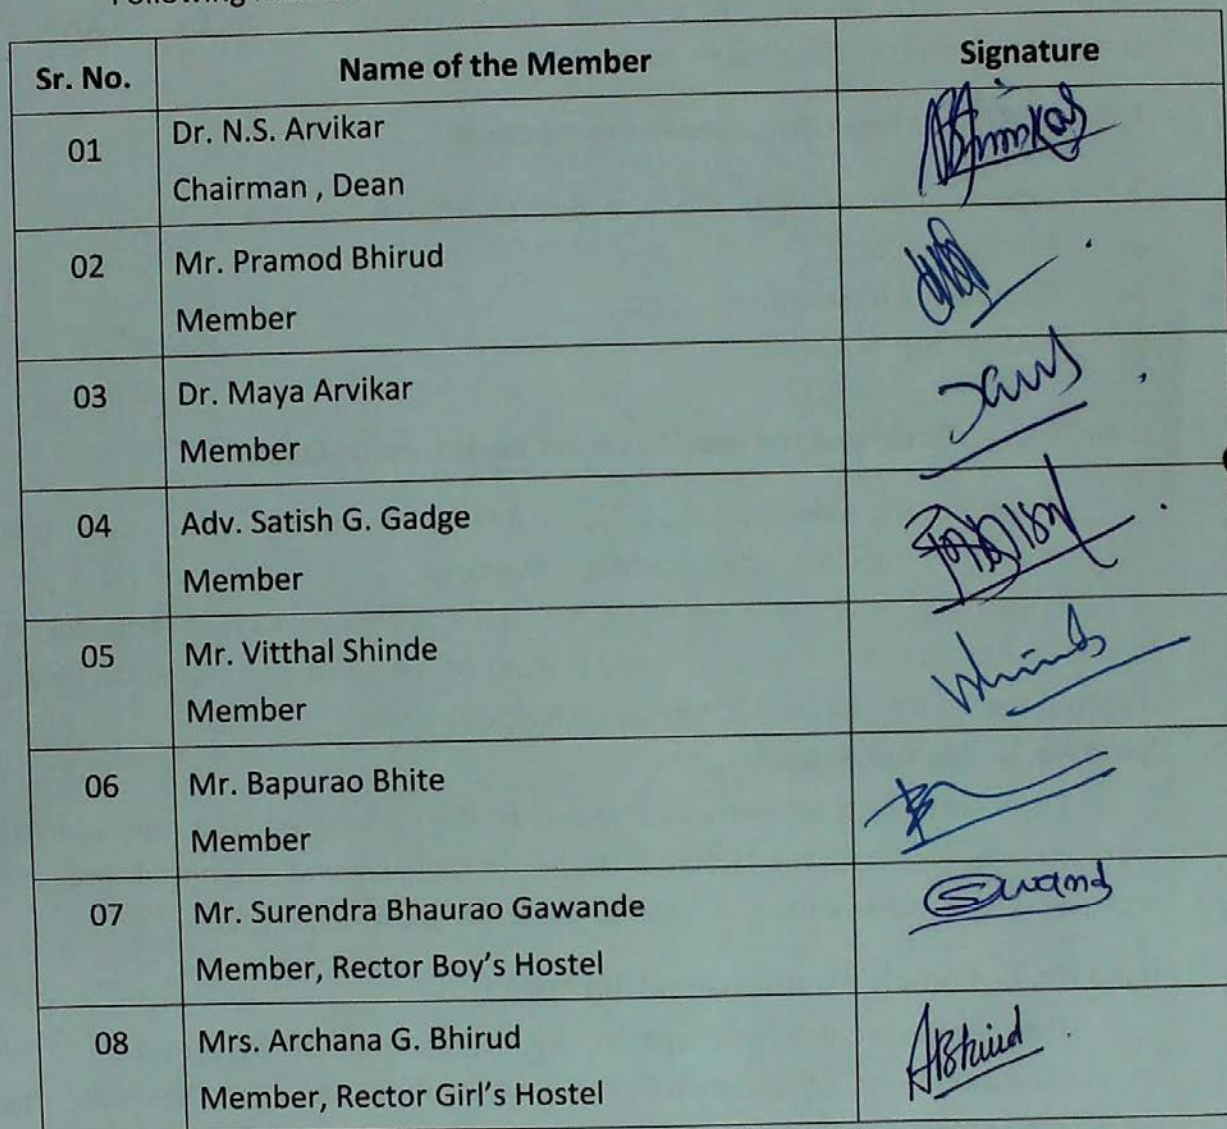 Following
Sr. No. Name of the Member Signature
01 Dr. N.S. Arvikar
Chairman , Dean
02 Mr. Pramod Bhirud
Member
03 Dr. Maya Arvikar
Member
04 Adv. Satish G. Gadge
Member
05 Mr. Vitthal Shinde
Member
06 Mr. Bapurao Bhite
Member
07 Mr. Surendra Bhaurao Gawande
Member, Rector Boy's Hostel
08 Mrs. Archana G. Bhirud ABhirud
Member, Rector Girl's Hostel